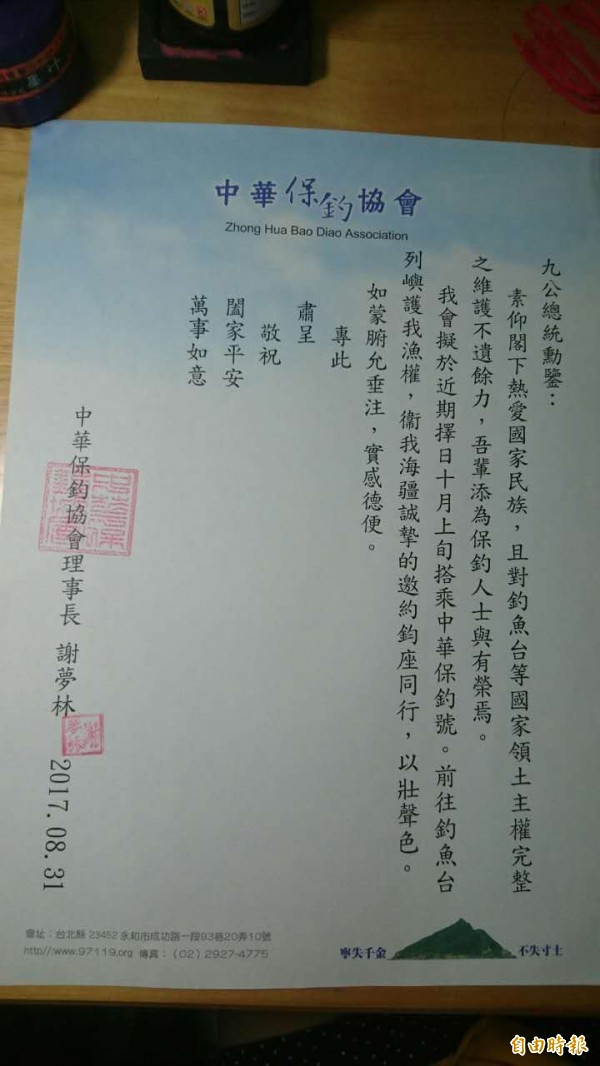 中華保釣協會
Zhong Hua Bao Diao Association
九公總統勳鑒：
素仰閣下熱愛國家民族，且對釣魚台等國家領土主權完整
之維護不遺餘力，吾輩添為保釣人士與有榮焉。
我會擬於近期擇日十月上旬搭乘中華保釣號。前往釣魚台
列嶼護我漁權，衞我海疆誠摯的邀約鈞座同行，以壯聲色。
如蒙腑允垂注，實感德便。
專此
肅呈
敬祝
闔家平安
萬事如意
中華保釣協會理事長 謝夢林
2017.08.31
會址：台北縣 23452 永和市成功路一段93巷20弄10號
http//:www.97119.org 傳真：（02）2927-4775
寧失千金
不失寸土
自由時報